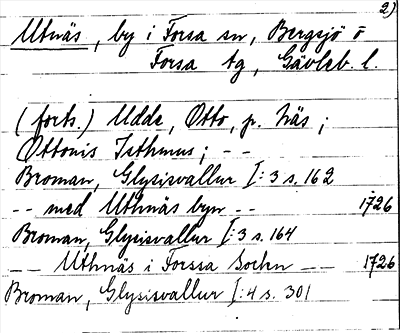 2)
Utnäs, by i Forsa sn, Bergsjö o
Forsa tg, Gävleb. l.
(forts.) Udde, Otto, p. Näs;
Ottonis Isthmus; - -
Broman, Glysisvallur I:3 s. 162
-- med Uthnäs byn -- 1726
Broman, Glysisvallur I:3 s. 164
-- Uthnäs i Forssa Sochn -- 1726
Broman, Glysisvallur I:4 s. 301